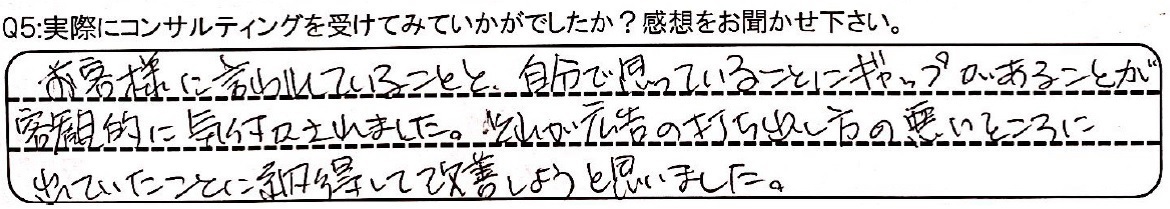 Q5:実際にコンサルティングを受けてみていかがでしたか？感想をお聞かせ下さい。
お客様に言われていることと、自分で思っていることにギャップがあることが
客観的に気付かされました。それが広告の打ち出し方の悪いところに
出ていたことに納得して改善しようと思いました。